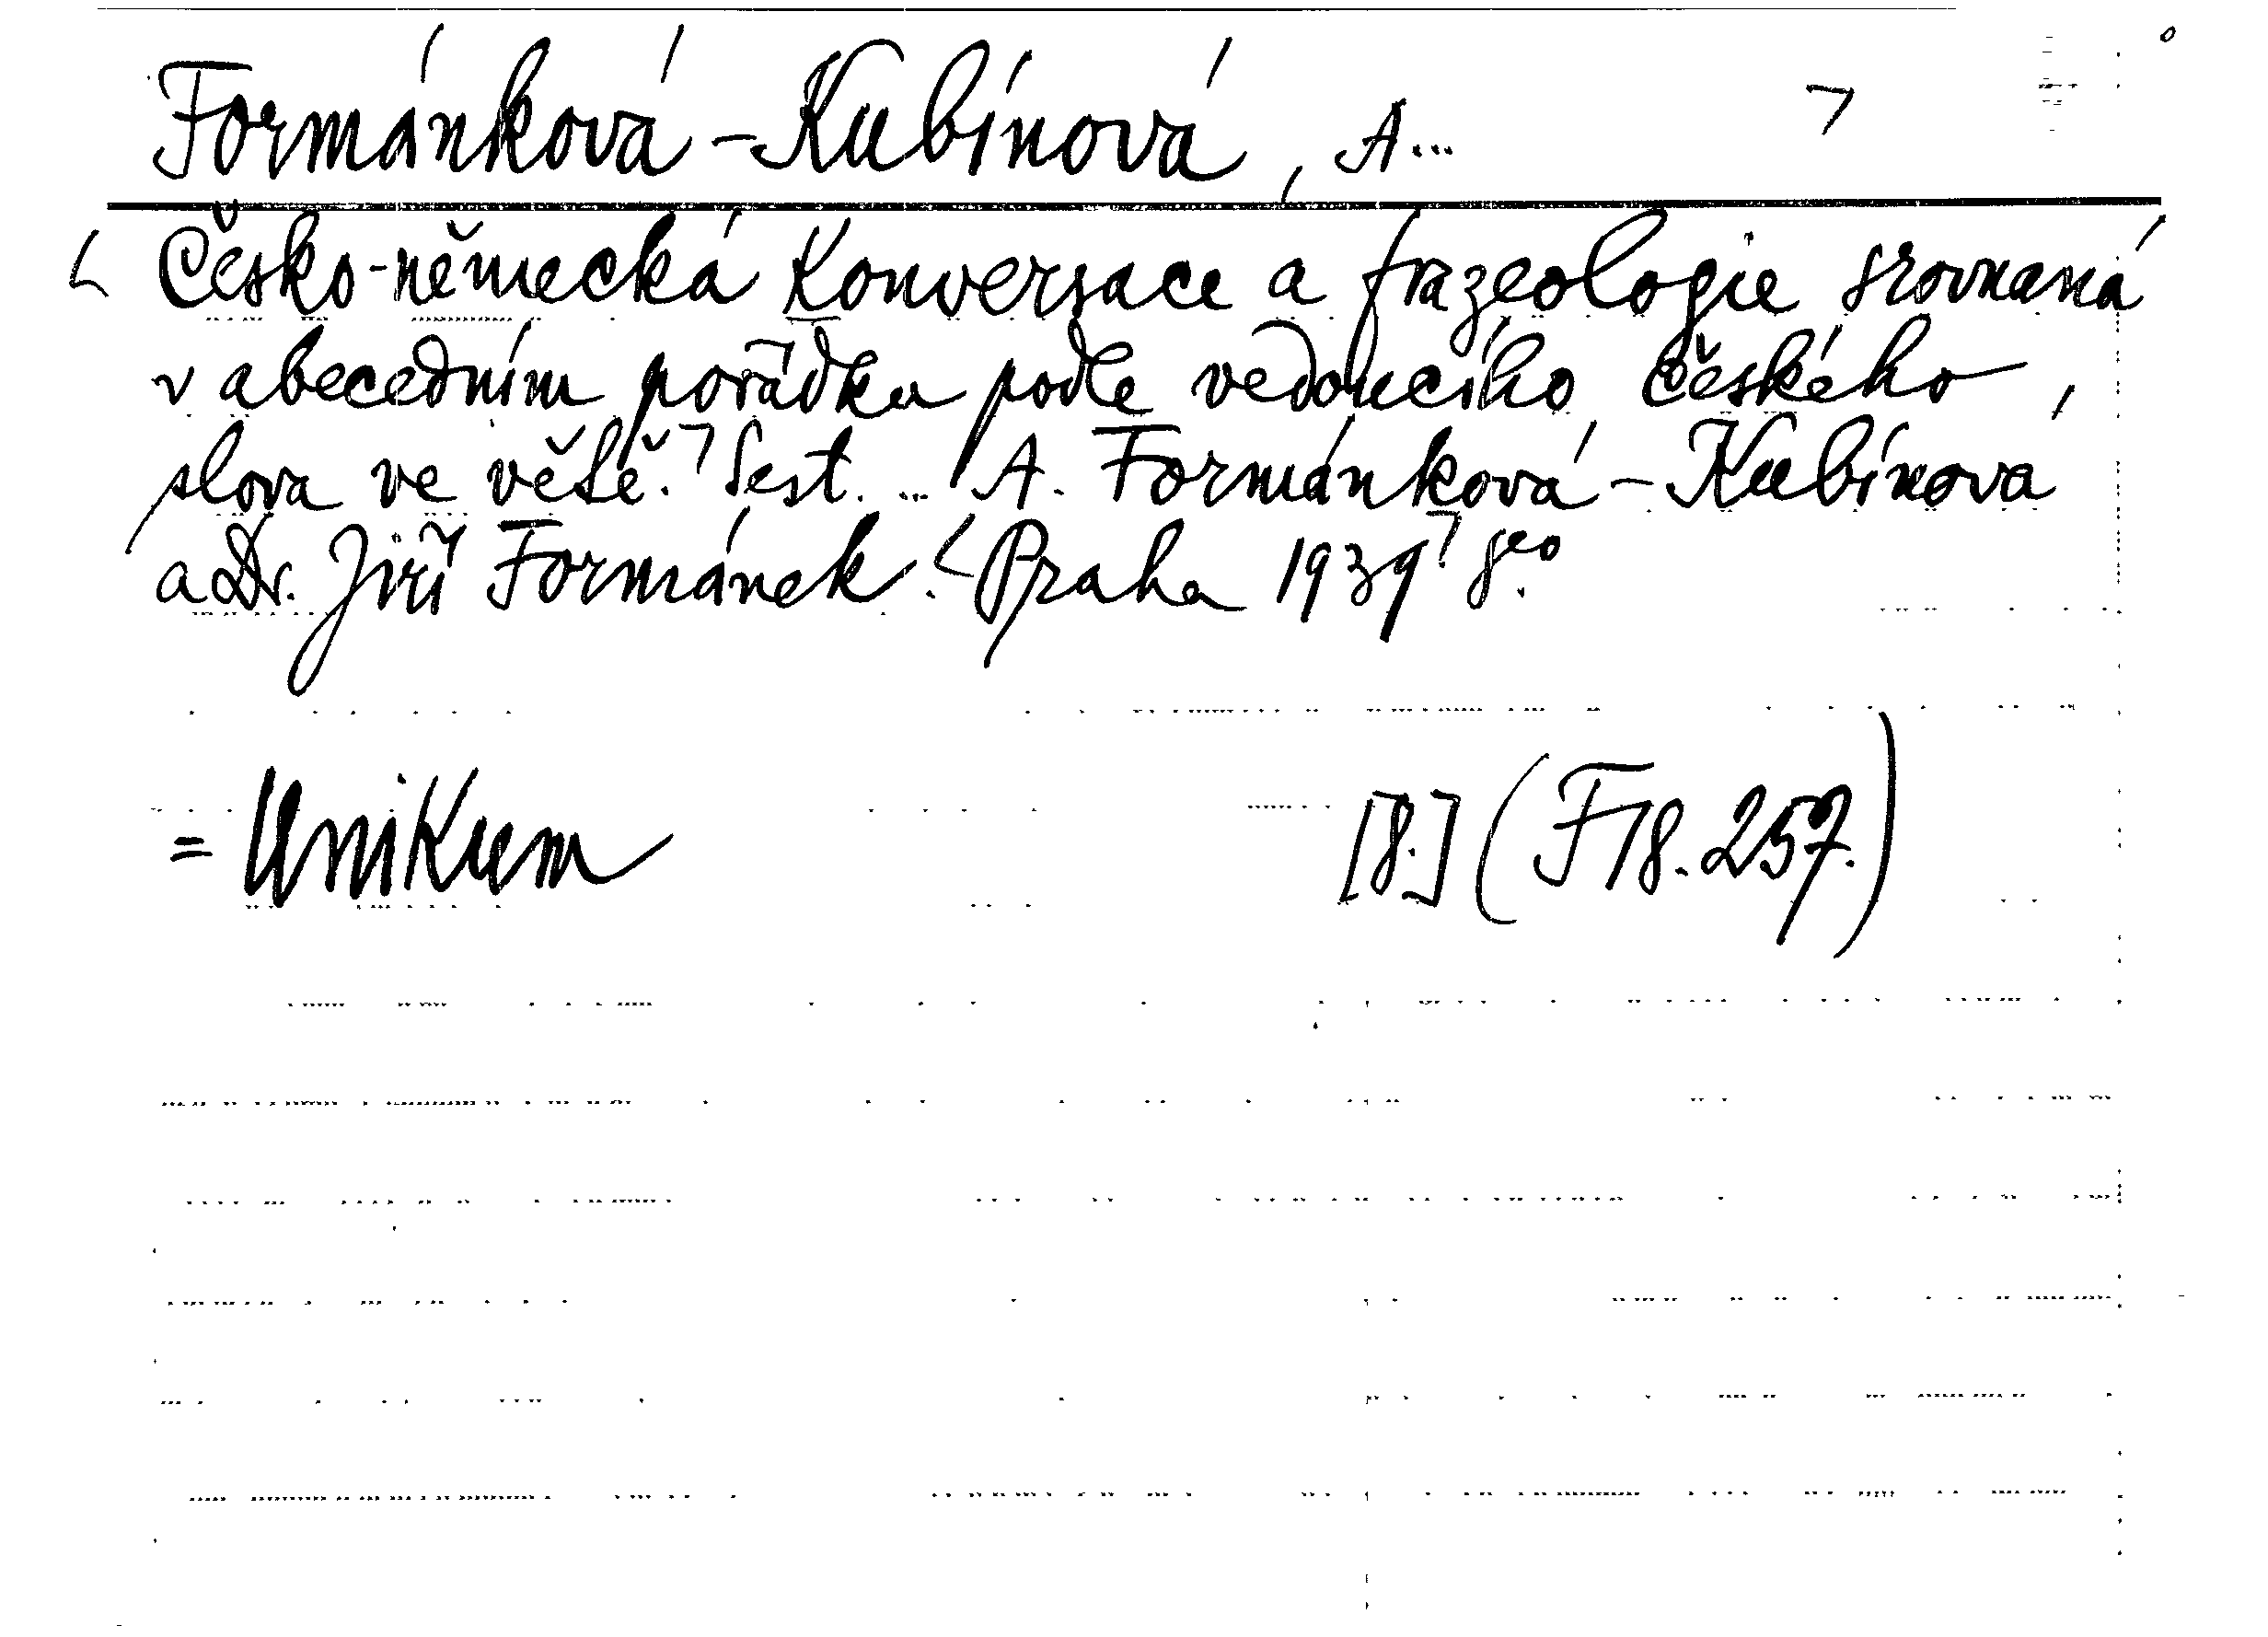 Formánková-Kubínová, A...
Česko-německá Konversace a frazeologie srovnaná
v abecedním pořádku podle vedoucího českého
slova ve větě. Sest. ... A. Formánková-Kubínová
a Dr. Jiří Formánek. Praha 1939 8°
= Unikum [8.] (F 18.257.)